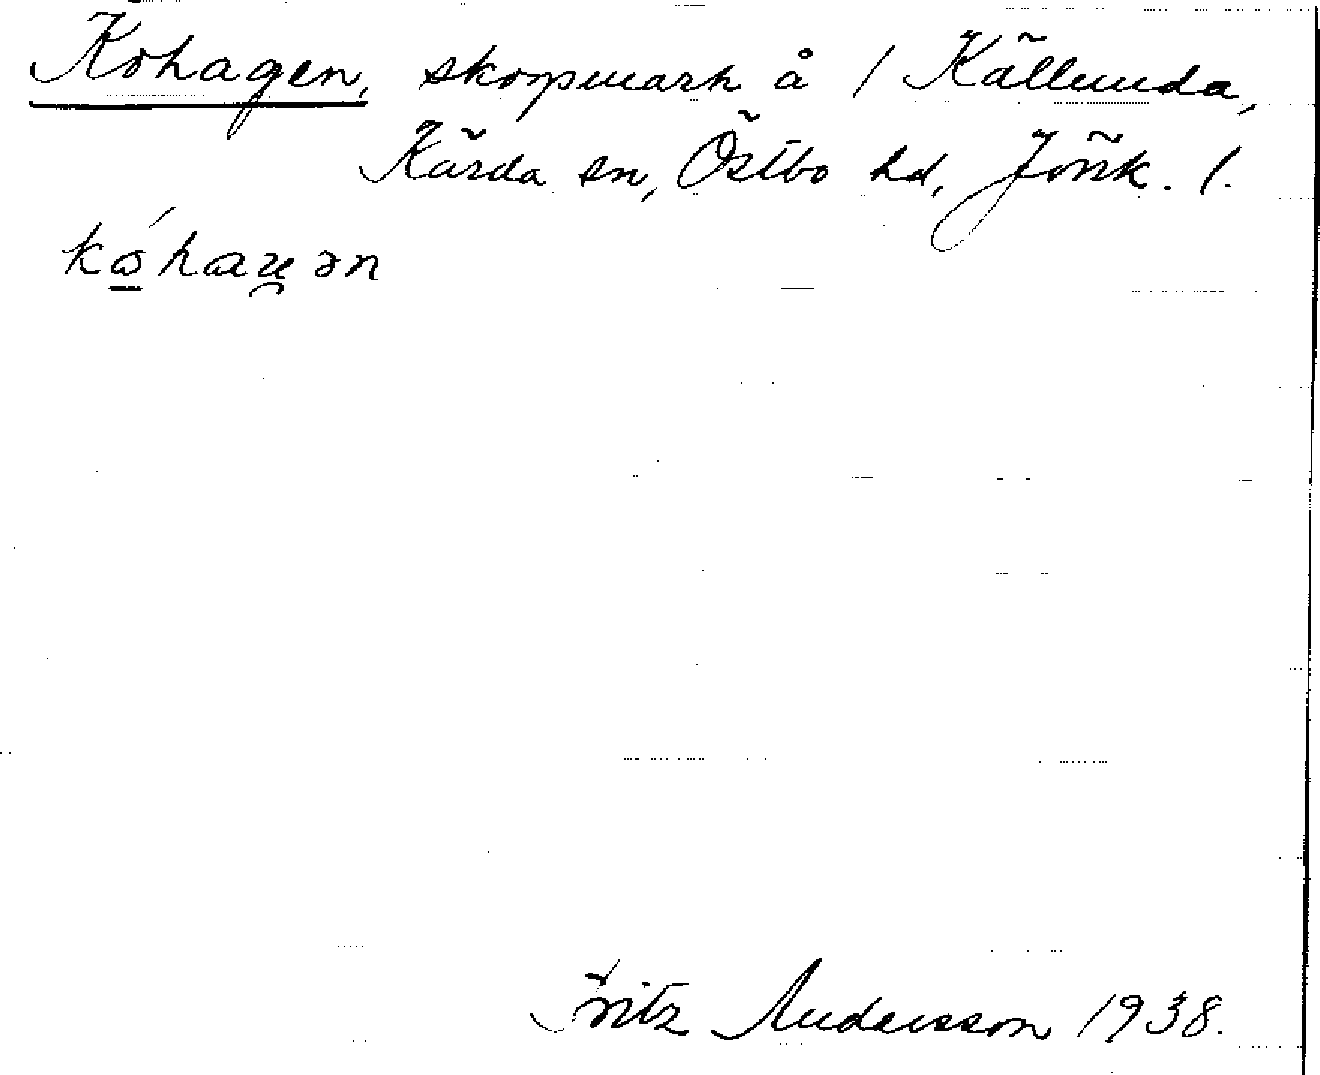 Kohagen, skogsmark å 1 Källunda,
Kärda sn, Östbo hd, Jönk. l.
Fritz Andersson 1938.